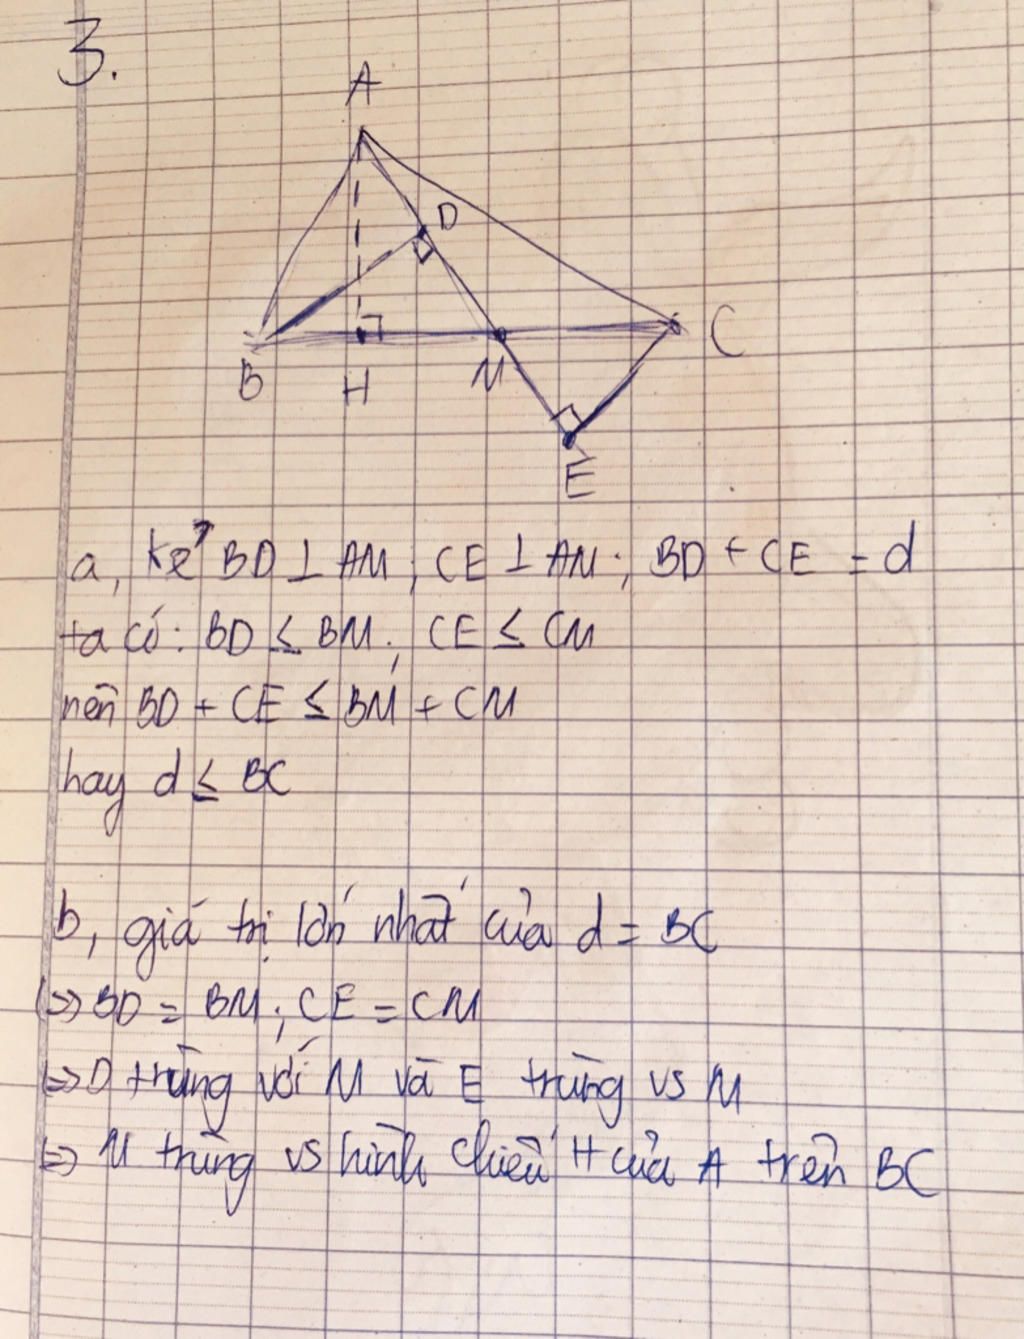 3.
A
D
B
H
M
C
E
a, kẻ BD ⊥ AM ; CE ⊥ AM ; BD + CE = d
ta có: BD ≤ BM ; CE ≤ CM
nên BD + CE ≤ BM + CM
hay d ≤ BC
b, giá trị lớn nhất của d = BC
⇔ BD = BM ; CE = CM
⇔ D trùng với M và E trùng vs M
⇔ M trùng vs hình chiếu H của A trên BC